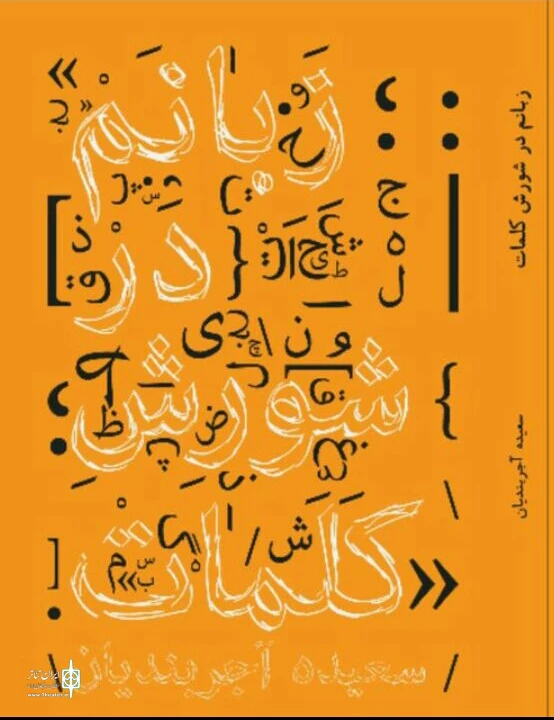 زبانم
در
شورشِ
کلمات
سعیده آجربندیان
زبانم در شورش کلمات
سعیده آجربندیان
ایران تئاتر